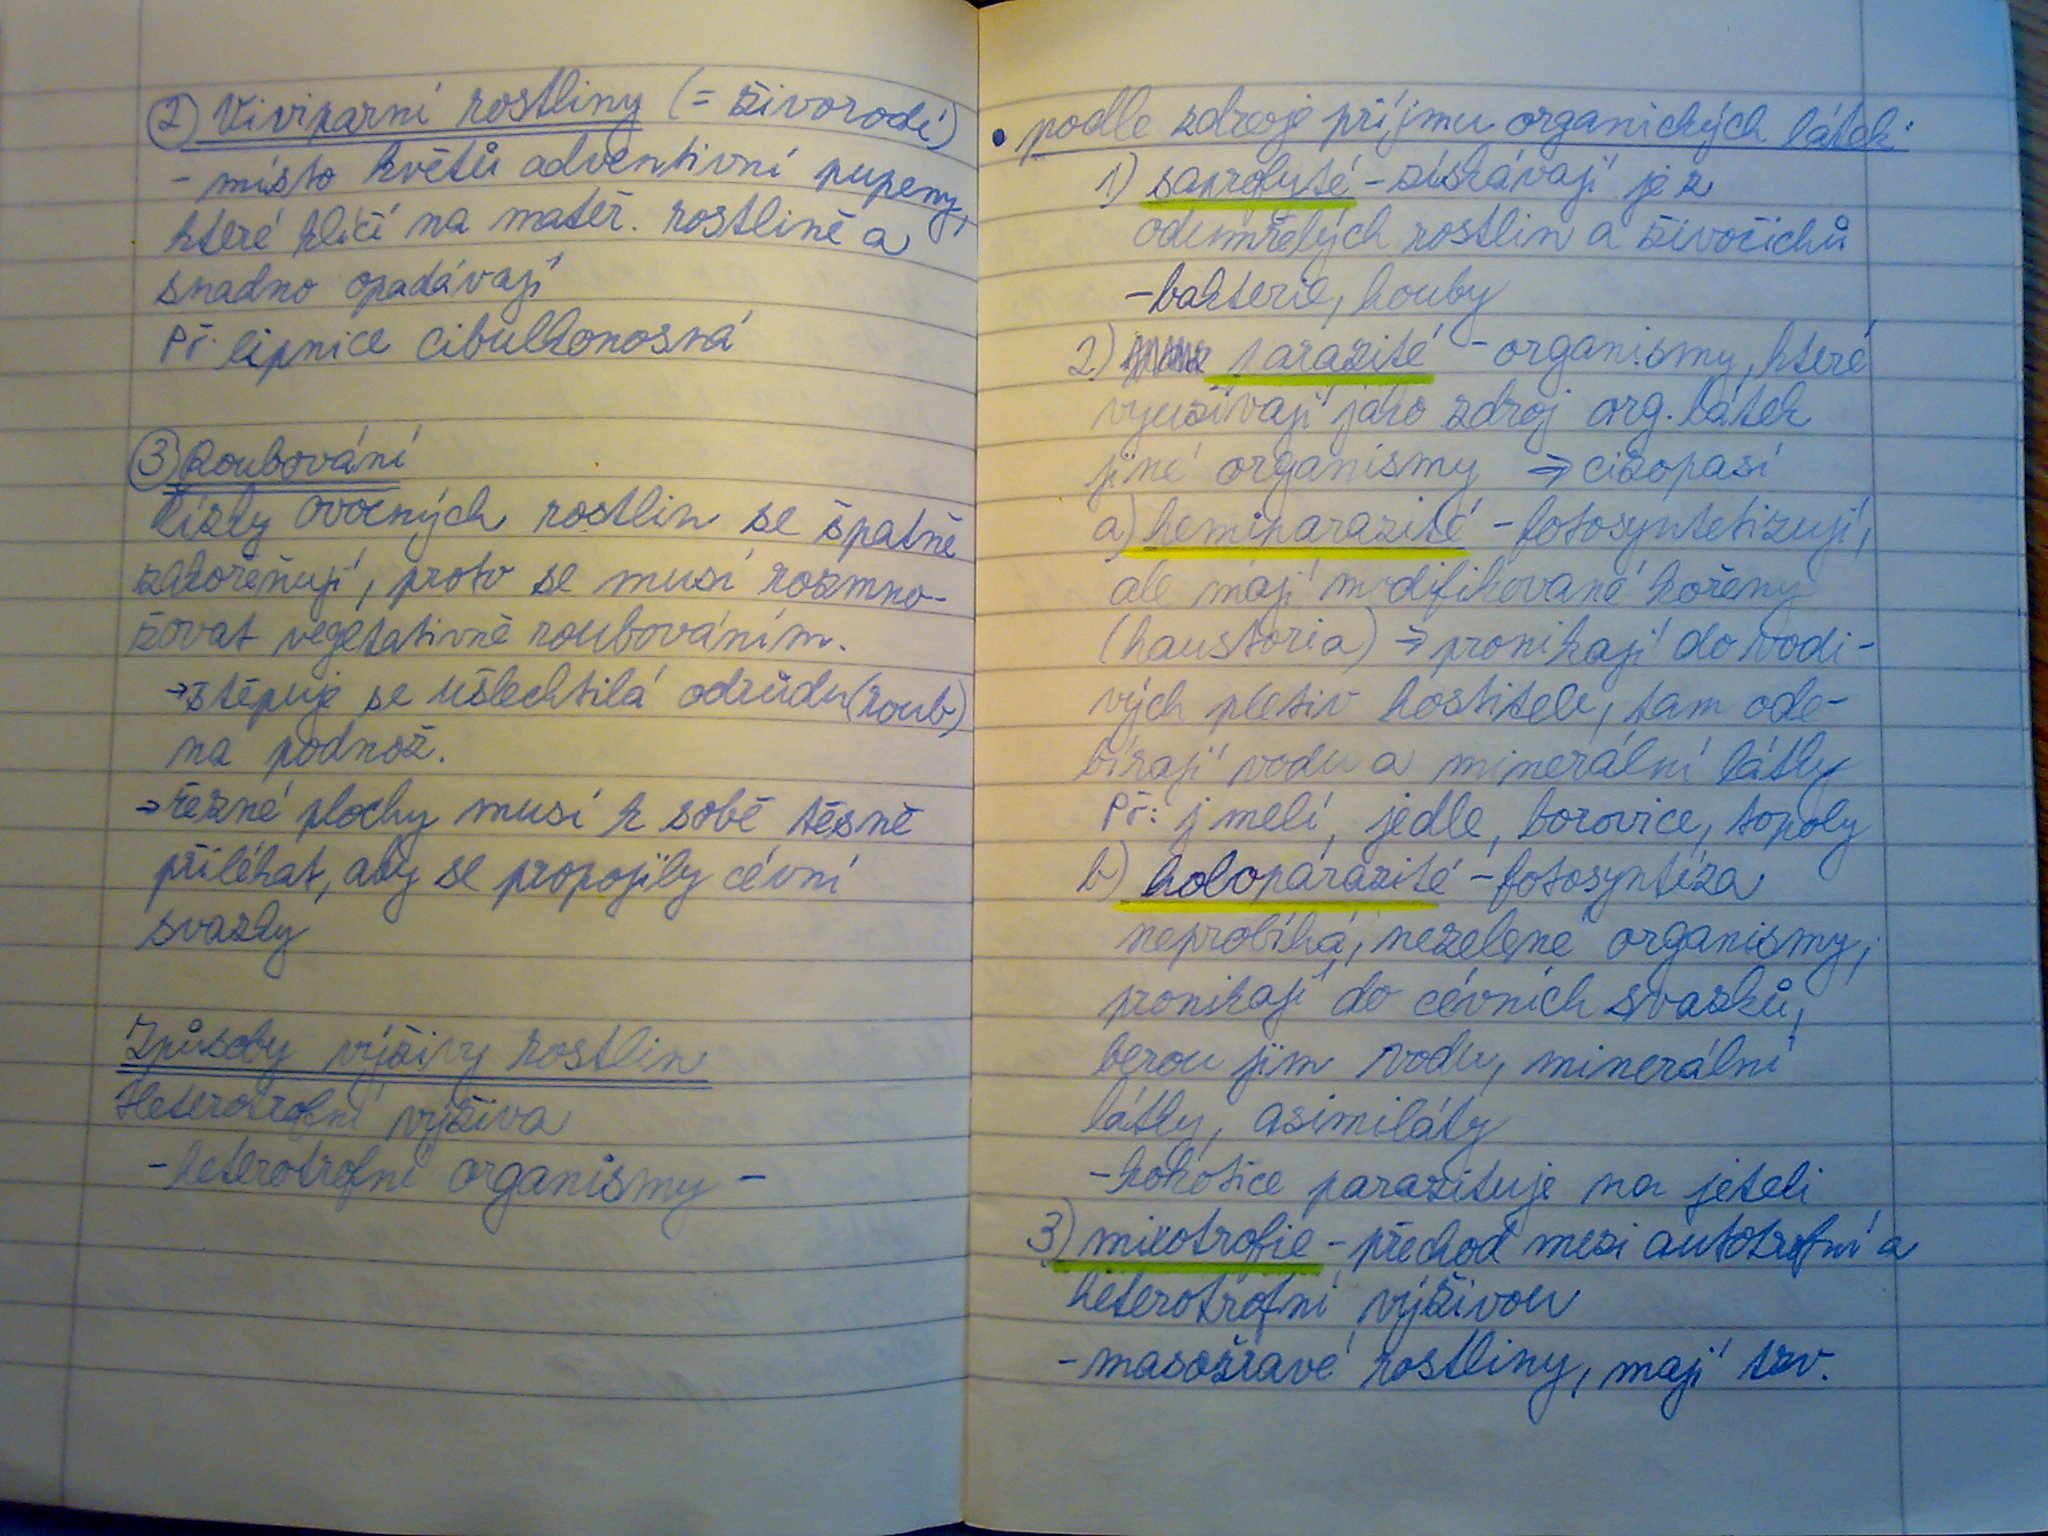 2) Viviparní rostliny (= živorodé)
- místo květů adventivní pupeny,
které klíčí na mateř. rostlině a
snadno opadávají
Př: lipnice cibulkonosná
3) Roubování
Řízky ovocných rostlin se špatně
zakořeňují, proto se musí rozmno-
žovat vegetativně roubováním.
→ štěpuje se ušlechtilá odrůdu (roub)
na podnož.
→ řezné plochy musí k sobě těsně
přiléhat, aby se propojily cévní
svazky
Způsoby výživy rostlin
Heterotrofní výživa
- heterotrofní organismy -
• podle zdroje příjmu organických látek:
1) saprofyté - získávají je z
odumřelých rostlin a živočichů
- bakterie, houby
2) parazité - organismy, které
využívají jako zdroj org. látek
jiné organismy → cizopasí
a) hemiparazité - fotosyntetizují,
ale mají modifikované kořeny
(haustoria) → pronikají do vodi-
vých pletiv hostitele, tam ode-
bírají vodu a minerální látky
Př: jmelí, jedle, borovice, topoly
b) holoparazité - fotosyntéza
neprobíhá, nezelené organismy,
pronikají do cévních svazků,
berou jim vodu, minerální
látky, asimiláty
- kokotice parazituje na jeteli
3) mixotrofie - přechod mezi autotrofní a
heterotrofní výživou
- masožravé rostliny, mají tzv.